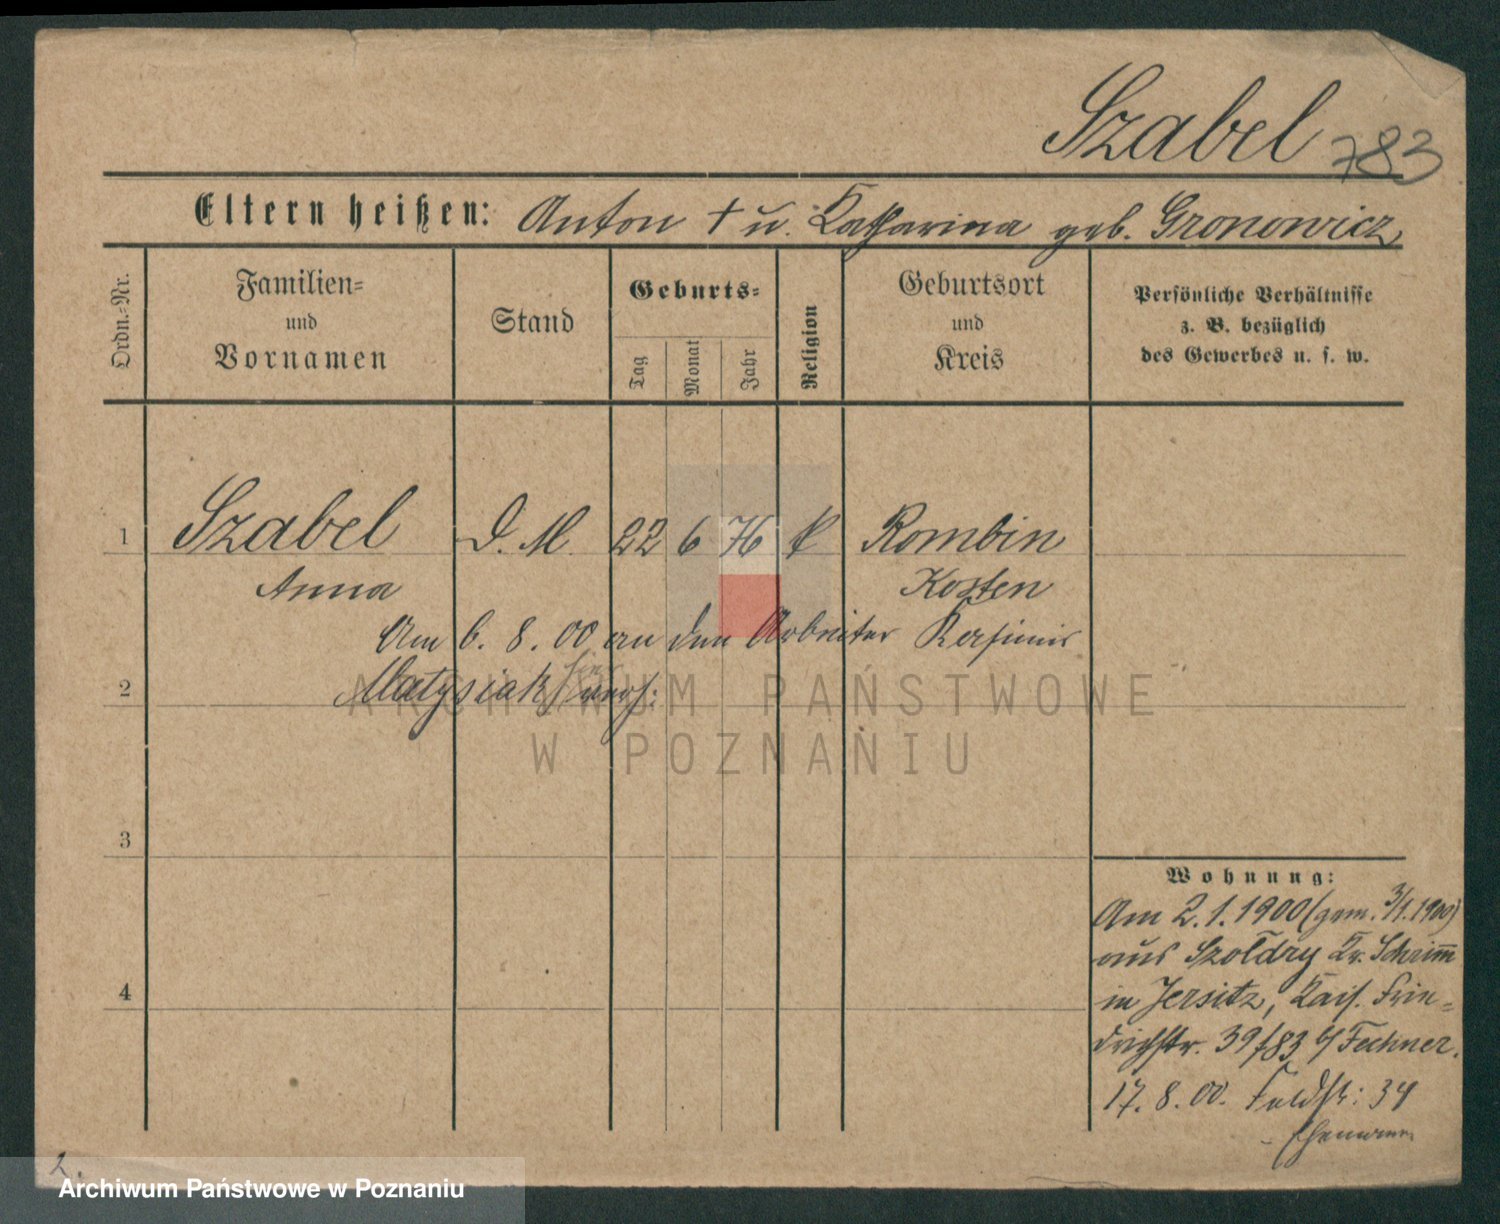 Szabel 783
Eltern heißen: Anton † u. Katharina geb. Gronowicz
Ordn.-Nr.
Familien- und Vornamen
Stand
Geburts-
Tag
Monat
Jahr
Religion
Geburtsort und Kreis
Persönliche Verhältnisse
z. B. bezüglich
des Gewerbes u. s. w.
1 Szabel D. M. 22 6 76 k Rombin
Anna Kosten
Am 6. 8. 00 an den Arbeiter
2 Matysiak hier verh:
3
4
Wohnung:
Am 2.1.1900 (gem. 3/1.1900)
aus Szoldry Kr. Schrimm
in Jersitz, Kais. Frie-
drichstr. 39/83 b/ Fechner.
17. 8. 00. Feldstr: 34
Ehemann
2.
ARCHIWUM PAŃSTWOWE
W POZNANIU
Archiwum Państwowe w Poznaniu